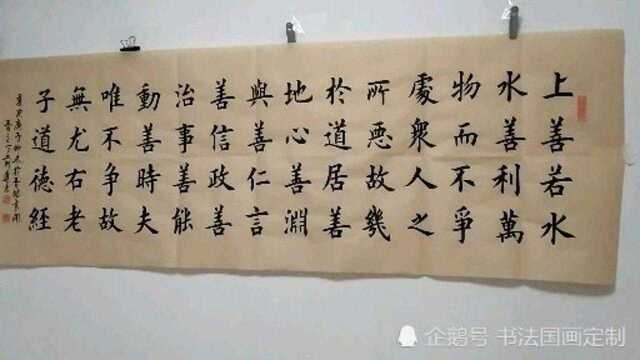 上善若水
水善利萬
物而不爭
處衆人之
所惡故幾
於道居善
地心善淵
與善仁言
善信政善
治事善能
動善時夫
唯不争故
無尤右老
子道德經
企鹅号 书法国画定制